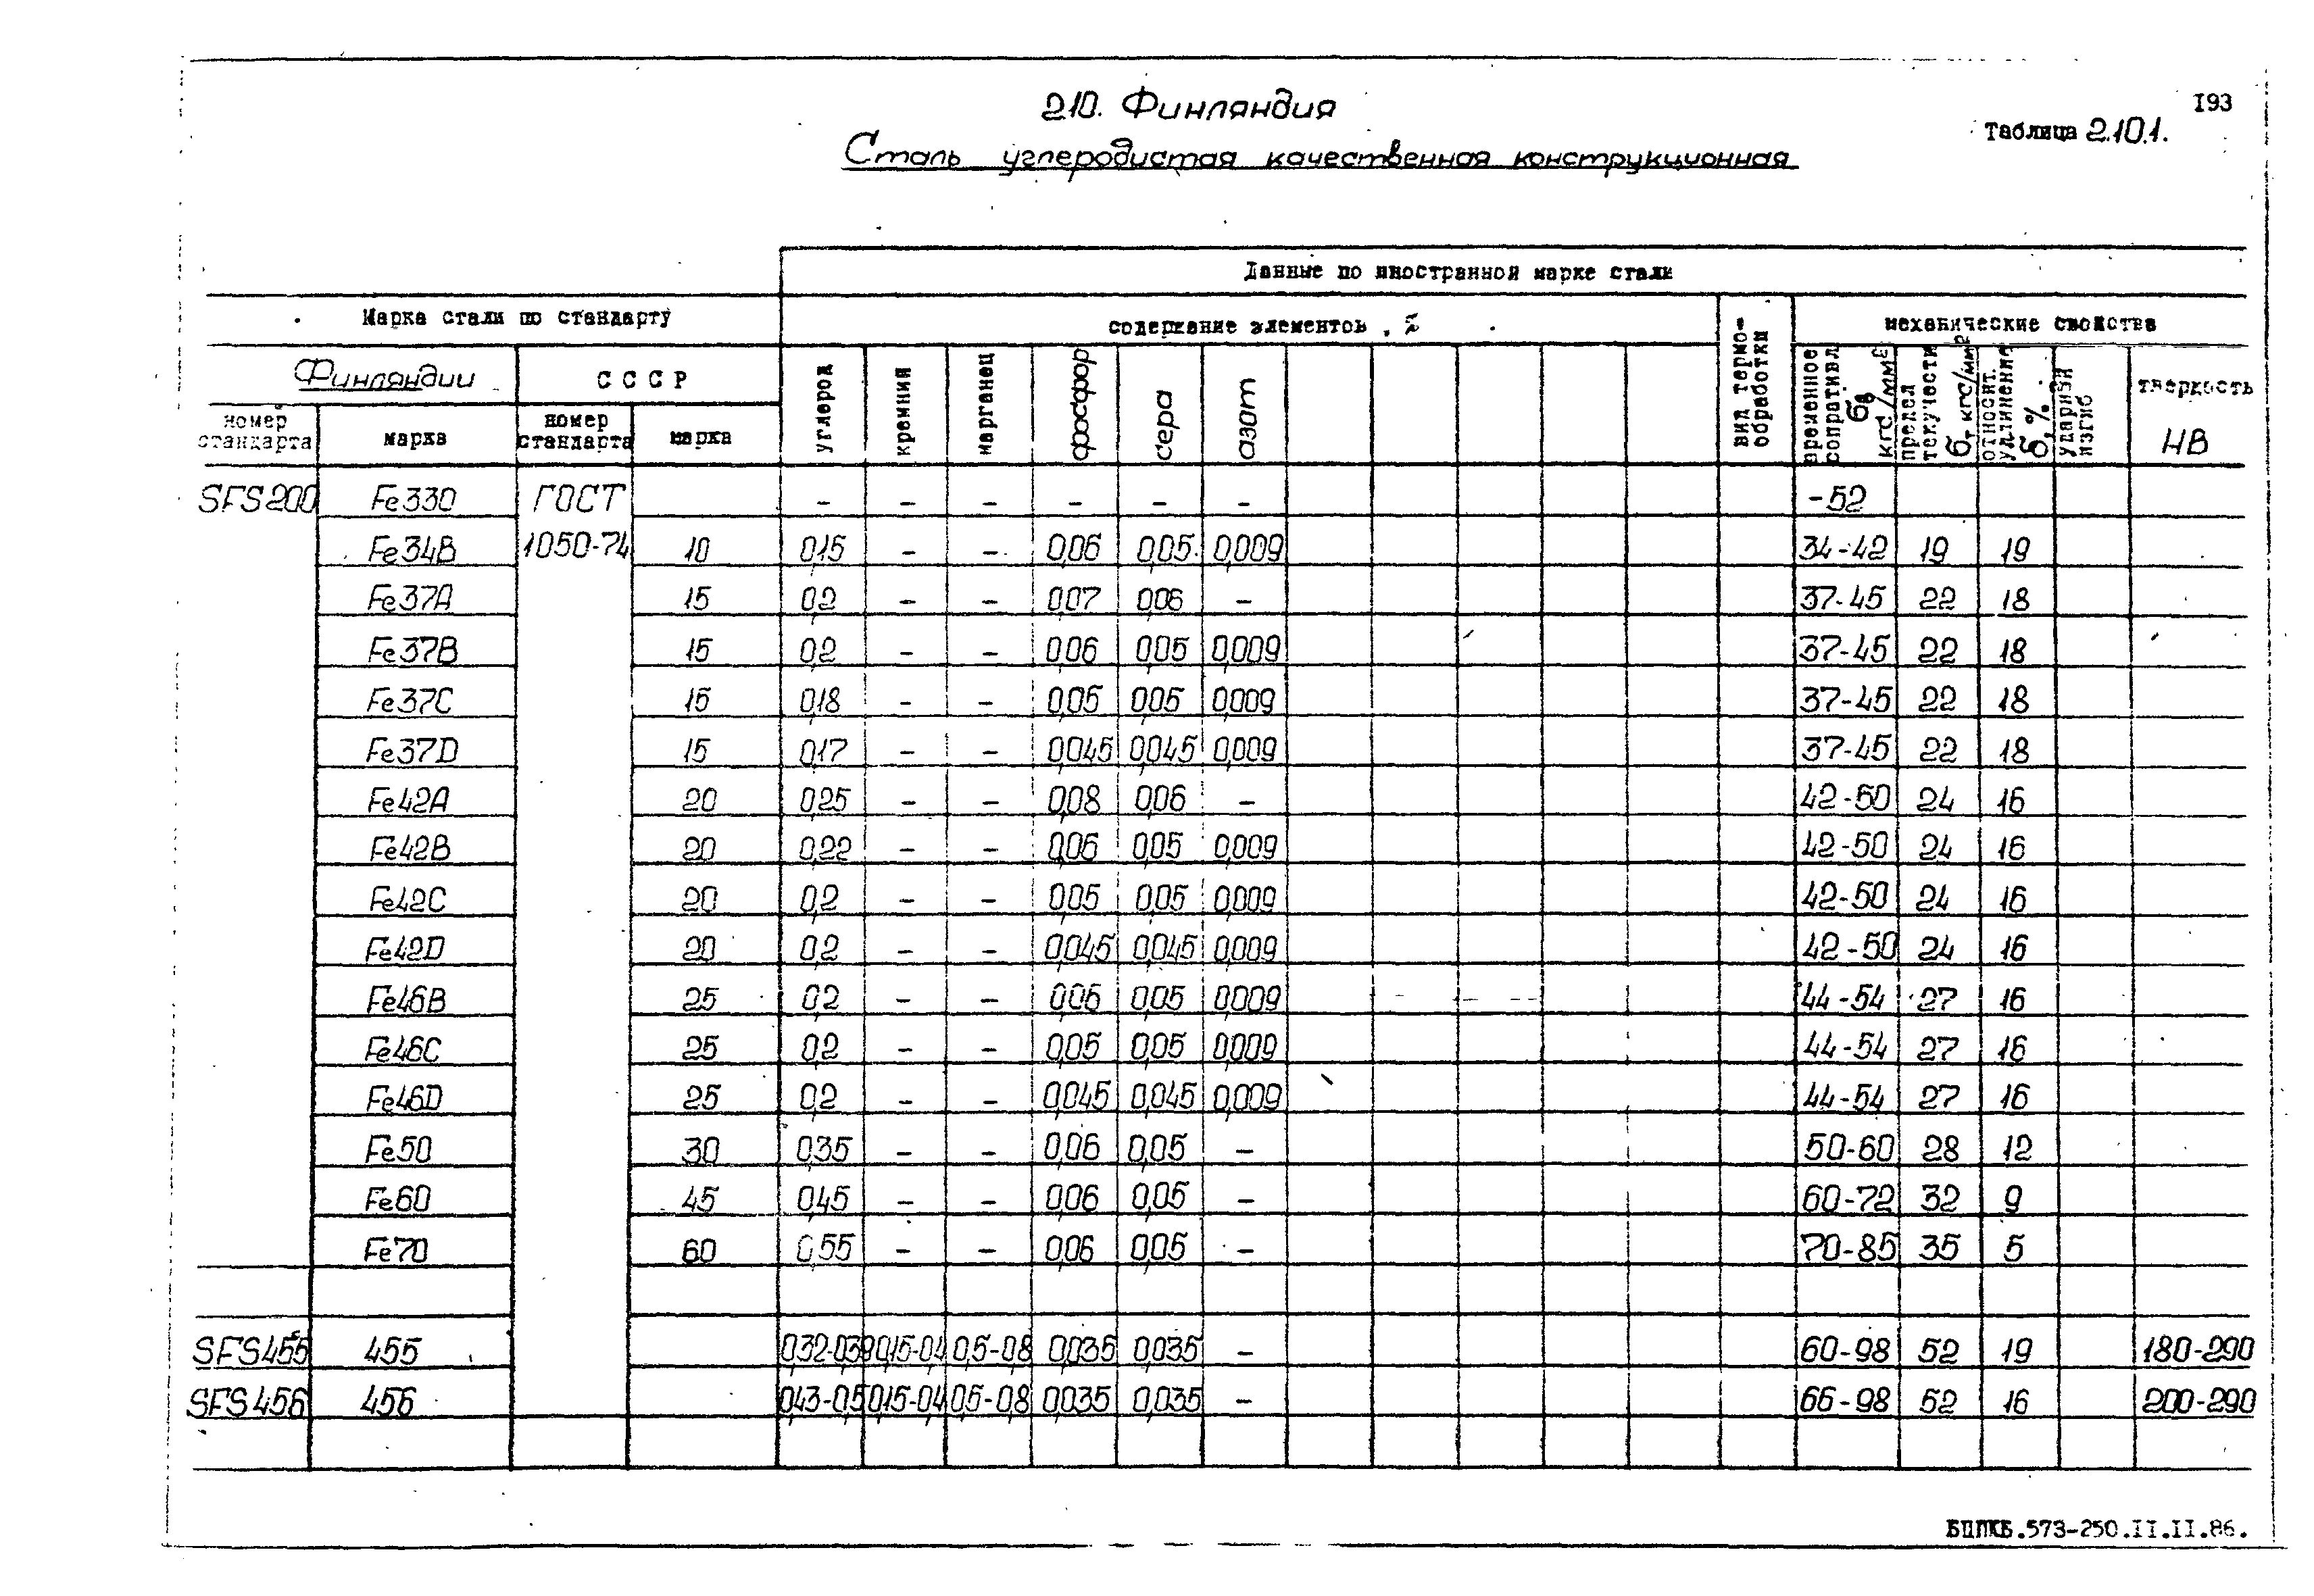 193
2.10. Финляндия
Таблица 2.10.1.
Сталь углеродистая качественная конструкционная
Данные по иностранной марке стали
Марка стали по стандарту
содержание элементов, %
вид термо-обработки
механические свойства
Финляндии
С С С Р
углерод
кремний
марганец
фосфор
сера
азот
временное сопротивл. бв кгс/мм2
предел текучести бт кгс/мм2
относит. удлинение б, %
ударный изгиб
твердость НВ
номер стандарта
марка
номер стандарта
марка
SFS200 Fe330 ГОСТ - - - - - - -52
Fe34B 1050-74 10 0,15 - - 0,06 0,05 0,009 34-42 19 19
Fe37A 15 0,2 - - 0,07 0,06 - 37-45 22 18
Fe37B 15 0,2 - - 0,06 0,05 0,009 37-45 22 18
Fe37C 15 0,18 - - 0,05 0,05 0,009 37-45 22 18
Fe37D 15 0,17 - - 0,045 0,045 0,009 37-45 22 18
Fe42A 20 0,25 - - 0,08 0,06 - 42-50 24 16
Fe42B 20 0,22 - - 0,06 0,05 0,009 42-50 24 16
Fe42C 20 0,2 - - 0,05 0,05 0,009 42-50 24 16
Fe42D 20 0,2 - - 0,045 0,045 0,009 42-50 24 16
Fe46B 25 0,2 - - 0,06 0,05 0,009 44-54 27 16
Fe46C 25 0,2 - - 0,05 0,05 0,009 44-54 27 16
Fe46D 25 0,2 - - 0,045 0,045 0,009 44-54 27 16
Fe50 30 0,35 - - 0,06 0,05 - 50-60 28 12
Fe60 45 0,45 - - 0,06 0,05 - 60-72 32 9
Fe70 60 0,55 - - 0,06 0,05 - 70-85 35 5
SFS455 455 0,32-0,39 0,15-0,4 0,5-0,8 0,035 0,035 - 60-98 52 19 180-290
SFS456 456 0,43-0,5 0,15-0,4 0,5-0,8 0,035 0,035 - 66-98 52 16 200-290
БЦПКБ.573-250.II.II.86.